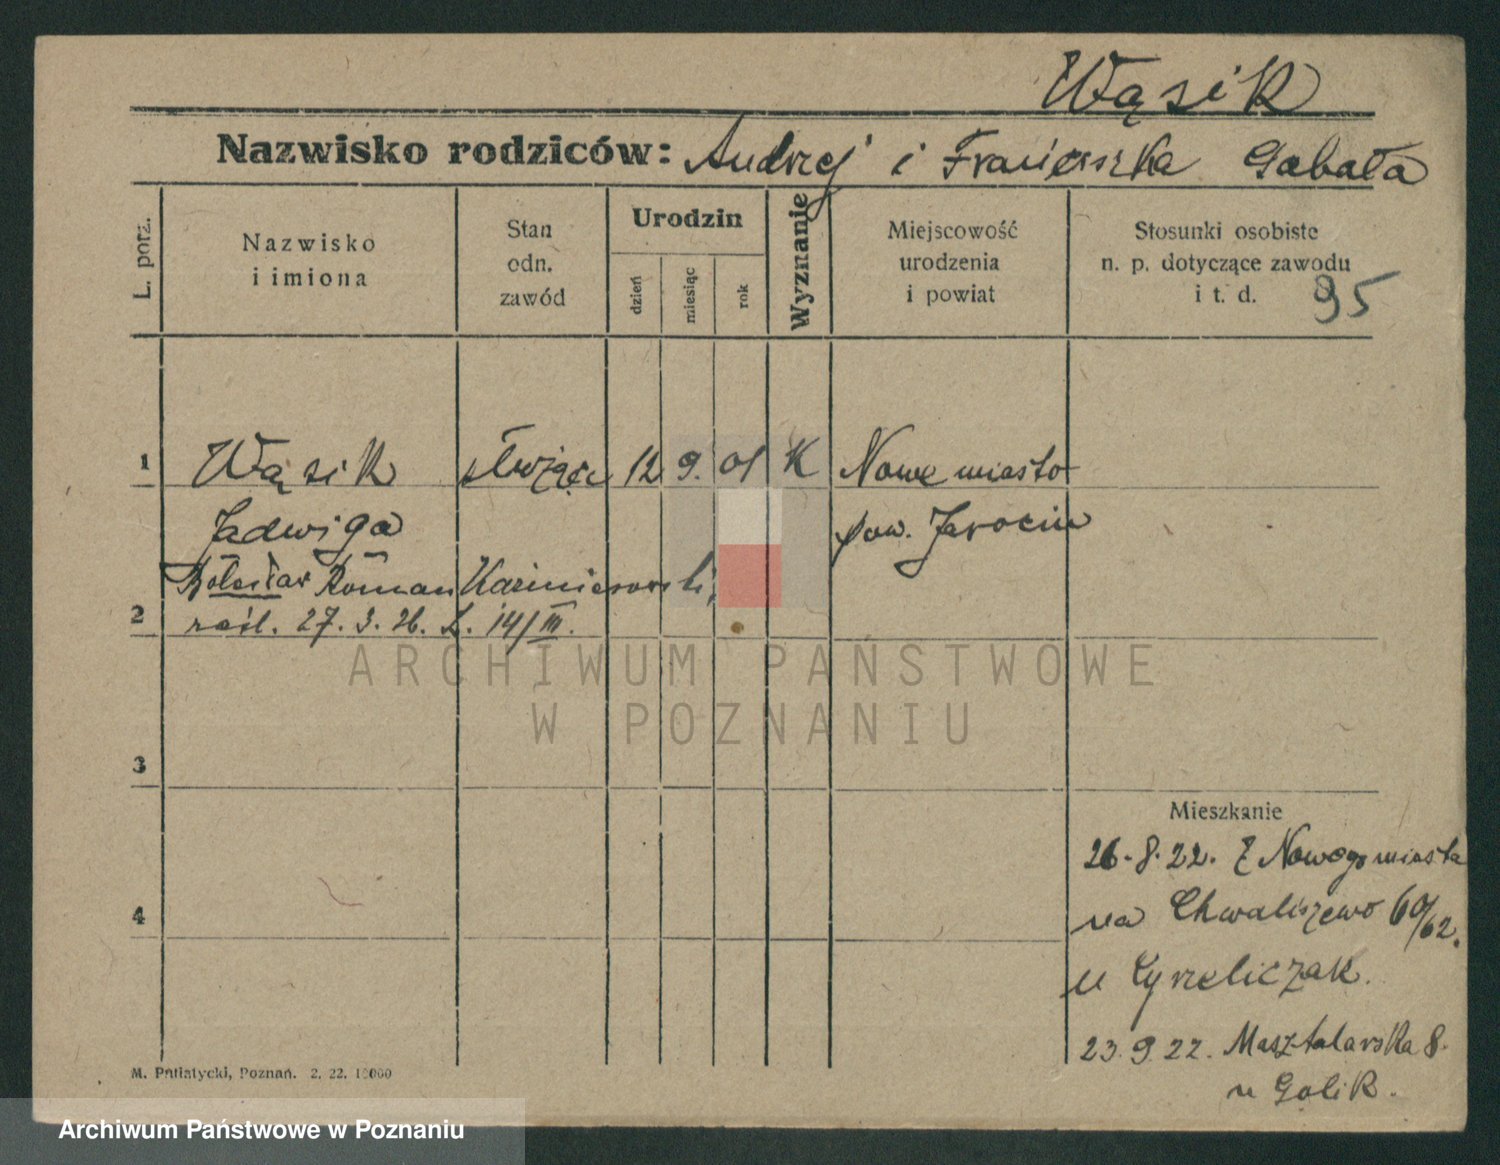 Wąsik
Nazwisko rodziców: Andrzej i Franciszka Gabała
L. porz.
Nazwisko
i imiona
Stan
odn.
zawód
Urodzin
dzień
miesiąc
rok
Wyznanie
Miejscowość
urodzenia
i powiat
Stosunki osobiste
n. p. dotyczące zawodu
i t. d.
95
1 Wąsik służąca 12 9. 01 K Nowe miasto
Jadwiga pow. Jarocin
Bolesław Roman Kazimierowski,
2 27. 3. 26. 14/III.
ARCHIWUM PAŃSTWOWE
W POZNANIU
3
Mieszkanie
26.8.22. Z Nowego miasta
4 na Chwaliszewo 60/62.
u Cyreliczak.
23.9.22. Masztalarska 8.
u Golik.
M. Putiatycki, Poznań. 2. 22. 10000
Archiwum Państwowe w Poznaniu